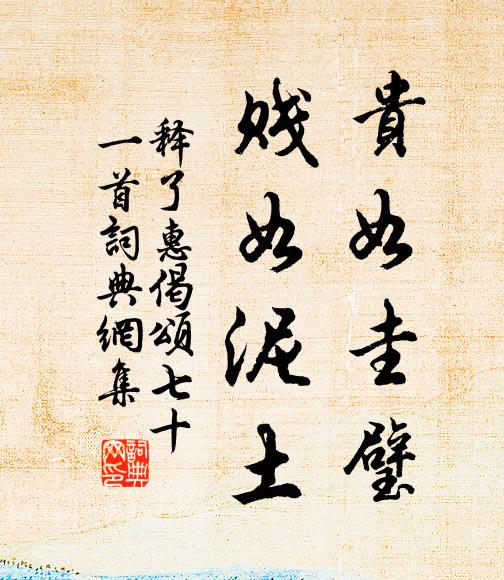 貴如圭璧
賤如泥土
释了惠偈頌七十
一首詞典網集
詞典
网印